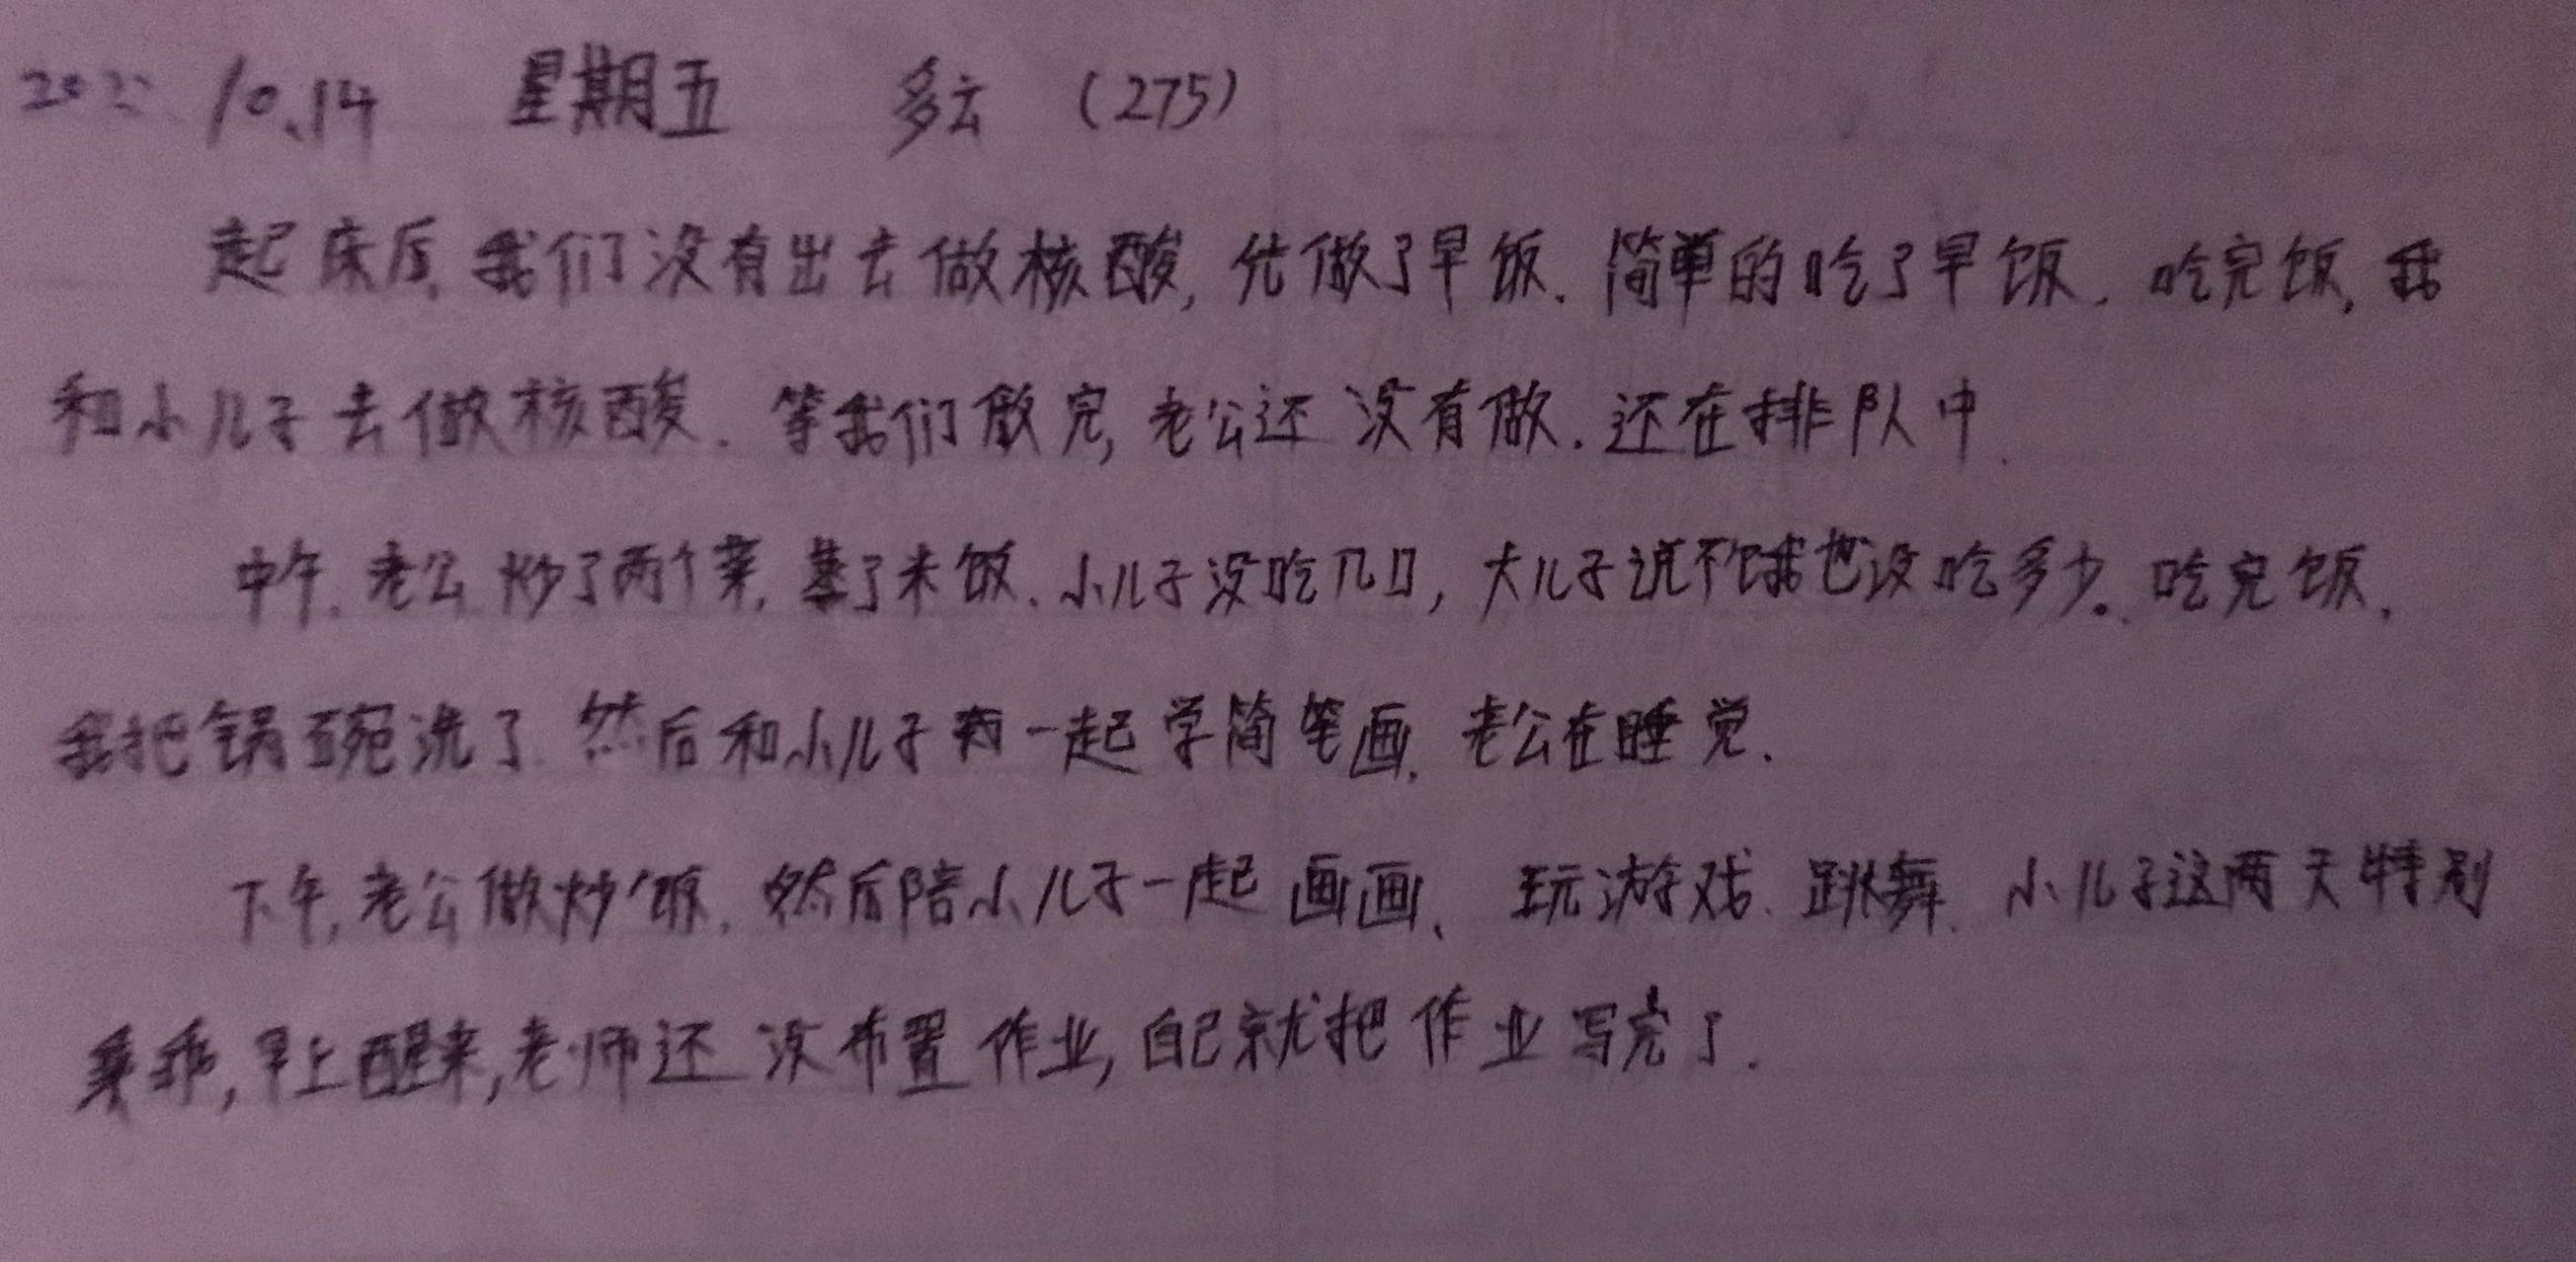 2022 10.14 星期五 多云 (275)
起床后,我们没有出去做核酸,先做了早饭.简单的吃了早饭.吃完饭,我
和小儿子去做核酸.等我们做完,老公还没有做.还在排队中.
中午.老公炒了两个菜,蒸了米饭.小儿子没吃几口,大儿子说不饿我也没吃多少。吃完饭.
我把锅碗洗了.然后和小儿子一起学简笔画.老公在睡觉.
下午,老公做炒饭.然后陪小儿子一起画画、玩游戏、跳舞.小儿子这两天特别
乖,早上醒来,老师还没布置作业,自己就把作业写完了.